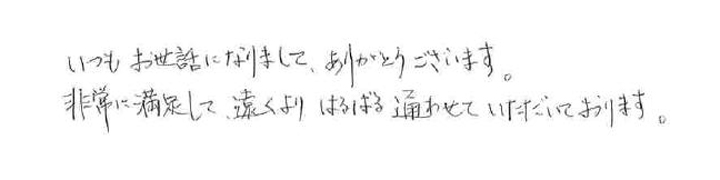 いつもお世話になりまして、ありがとうございます。
非常に満足して、遠くよりはるばる通わせていただいております。